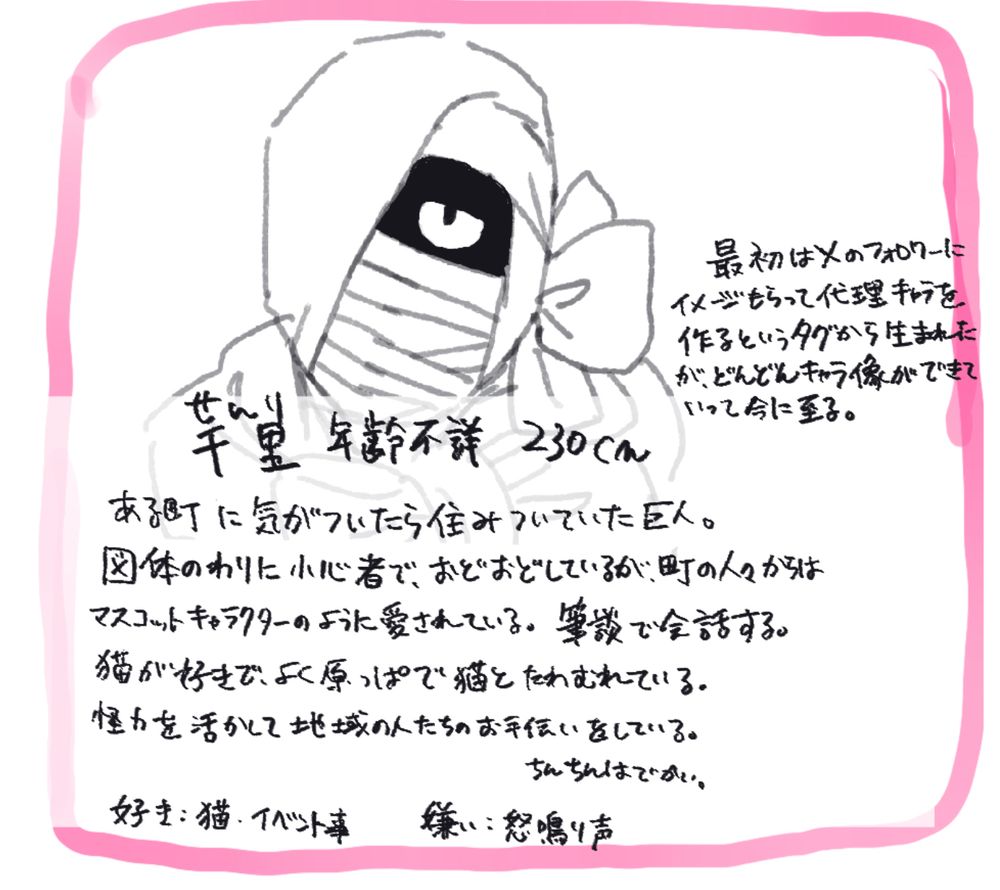 最初はXのフォロワーに
イメージもらって代理キャラを
作るというタグから生まれた
が、どんどんキャラ像ができて
いって今に至る。
せんり
千里 年齢不詳 230cm
ある町に気がついたら住みついていた巨人。
図体のわりに小心者で、おどおどしているが、町の人々からは
マスコットキャラクターのように愛されている。筆談で会話する。
猫が好きで、よく原っぱで猫とたわむれている。
怪力を活かして地域の人たちのお手伝いをしている。
ちんちんはでかい。
好き:猫・イベント事 嫌い:怒鳴り声